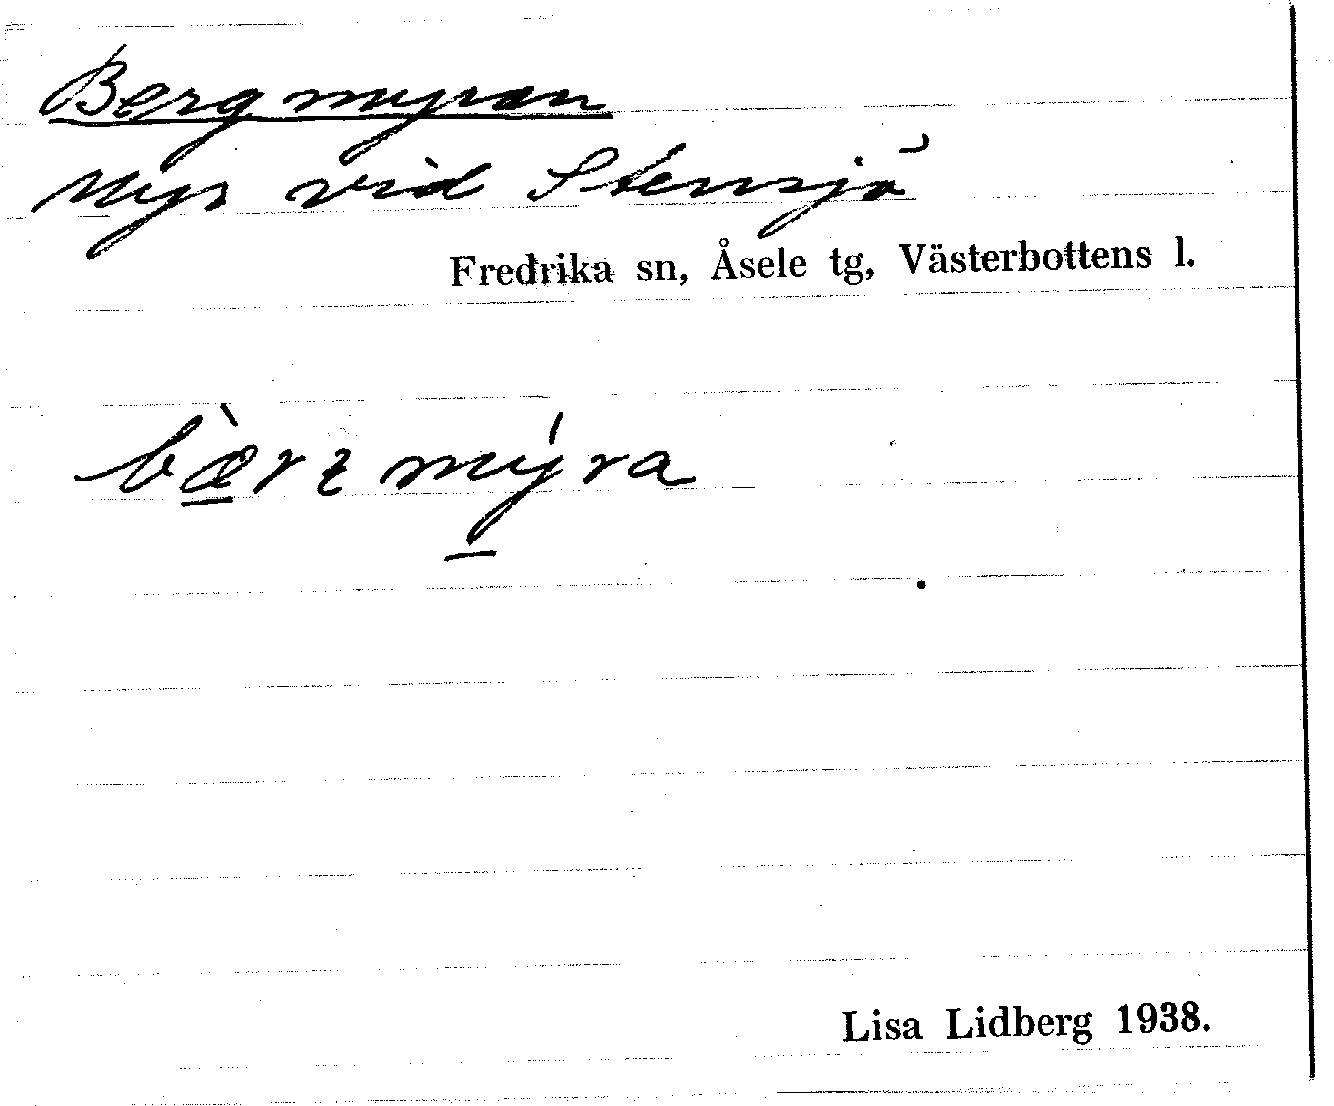 Bergmyran
Myr vid Stensjö
Fredrika sn, Åsele tg, Västerbottens l.
bæ̱̀rʒmý̱ra
Lisa Lidberg 1938.